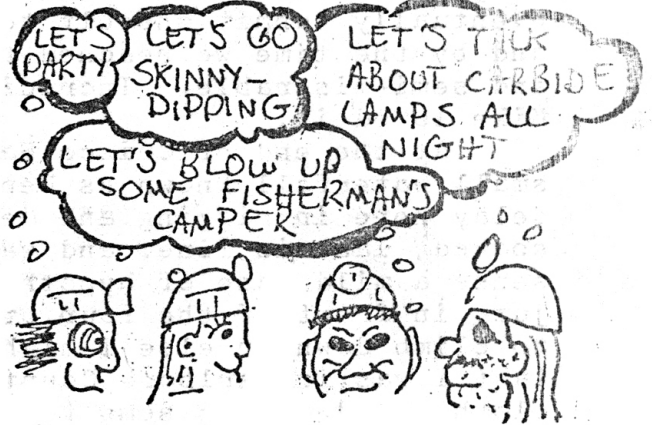 LET'S
PARTY
LET'S GO
SKINNY-
DIPPING
LET'S TALK
ABOUT CARBIDE
LAMPS ALL
NIGHT
LET'S BLOW UP
SOME FISHERMAN'S
CAMPER